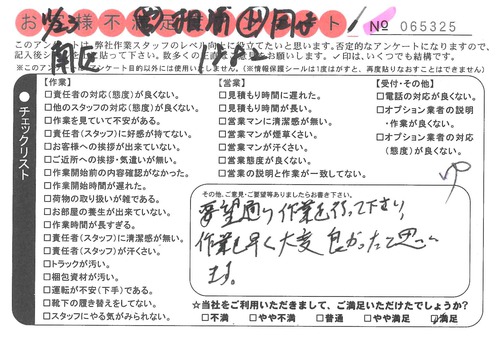 お客様不満足 ト! № 065325
このアンケートは、弊社作業スタッフのレベル向上に役立てたいと思います。否定的なアンケートになりますので、
記入後シールを貼って下さい。数多くの正直な意見をお願いします。✓印は、いくつでも結構です。
※このアンケートは目的以外には使用いたしません。(※情報保護シールは1度はがすと、再度貼りなおすことはできません。)
チェックリスト
【作業】
□責任者の対応(態度)が良くない。
□他のスタッフの対応(態度)が良くない。
□作業を見ていて不安がある。
□責任者(スタッフ)に好感が持てない。
□お客様への挨拶が出来ていない。
□ご近所への挨拶・気遣いが無い。
□作業開始前の内容確認がなかった。
□作業開始時間が遅れた。
□荷物の取り扱いが雑である。
□お部屋の養生が出来ていない。
□作業時間が長すぎる。
□責任者(スタッフ)に清潔感が無い。
□責任者(スタッフ)が汗くさい。
□トラックが汚い。
□梱包資材が汚い。
□運転が不安(下手)である。
□靴下の履き替えをしてない。
□スタッフにやる気がみられない。
【営業】
□見積もり時間に遅れた。
□見積もり時間が長い。
□営業マンに清潔感が無い。
□営業マンが煙草くさい。
□営業マンが汗くさい。
□営業態度が良くない。
□営業の説明と作業が一致してない。
【受付・その他】
□電話の対応が良くない。
□オプション業者の説明
・作業が良くない。
□オプション業者の対応
(態度)が良くない。
その他、ご意見・ご要望等ありましたらお書き下さい。
要望通り作業を行って下さり、
作業も早く大変良かったと思い
ます。
☆当社をご利用いただきまして、ご満足いただけたでしょうか?
□不満 □やや不満 □普通 □やや満足 ☑満足